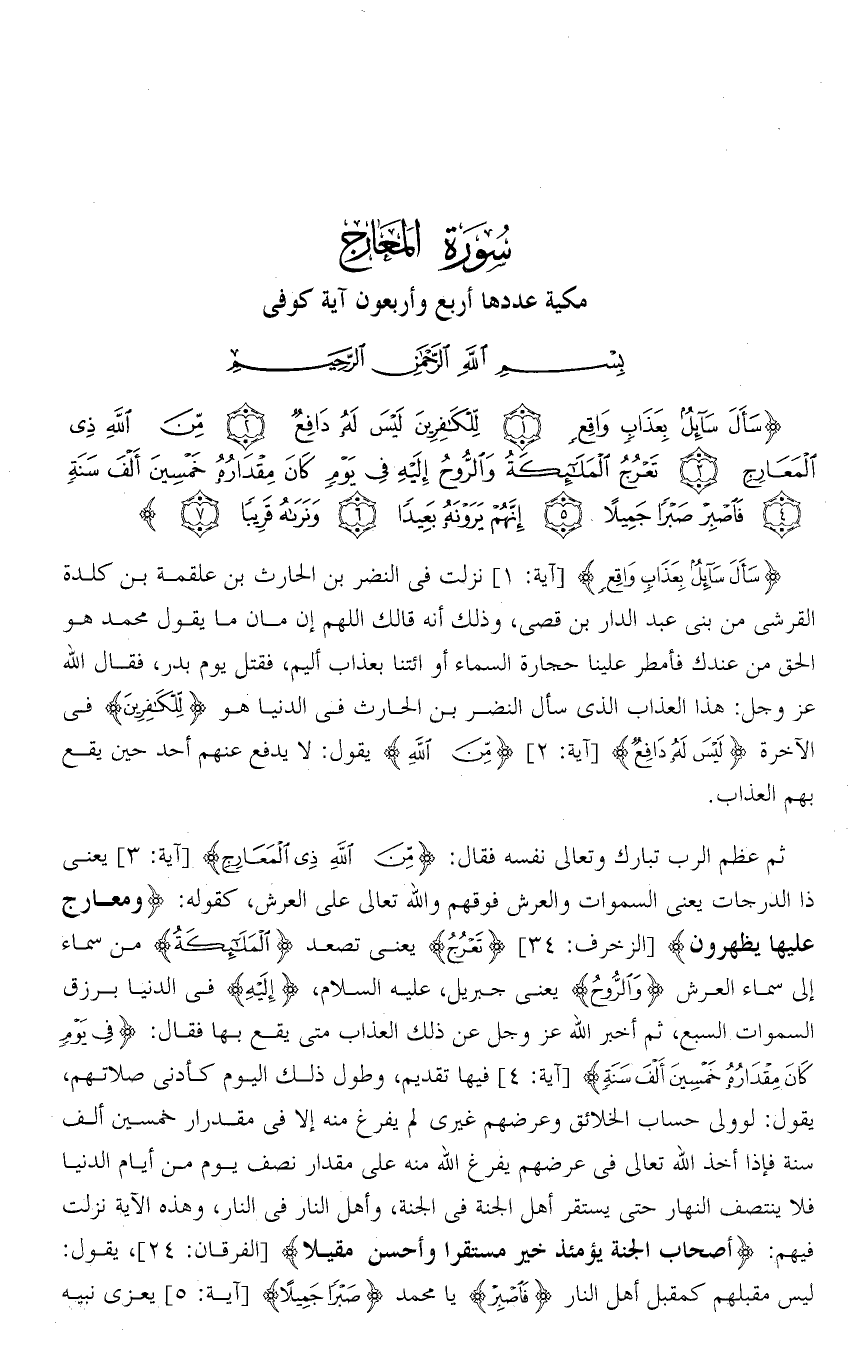 سُورَة المَعَارج
مكية عددها أربع وأربعون آية كوفى
بِسْمِ ٱللَّهِ ٱلرَّحْمَٰنِ ٱلرَّحِيمِ
﴿سَأَلَ سَآئِلٌۢ بِعَذَابٍ وَاقِعٍ ﴿١﴾ لِّلْكَٰفِرِينَ لَيْسَ لَهُۥ دَافِعٌ ﴿٢﴾ مِّنَ ٱللَّهِ ذِى
ٱلْمَعَارِجِ ﴿٣﴾ تَعْرُجُ ٱلْمَلَٰٓئِكَةُ وَٱلرُّوحُ إِلَيْهِ فِى يَوْمٍ كَانَ مِقْدَارُهُۥ خَمْسِينَ أَلْفَ سَنَةٍ
﴿٤﴾ فَٱصْبِرْ صَبْرًا جَمِيلًا ﴿٥﴾ إِنَّهُمْ يَرَوْنَهُۥ بَعِيدًا ﴿٦﴾ وَنَرَىٰهُ قَرِيبًا ﴿٧﴾ ﴾
﴿سَأَلَ سَآئِلٌۢ بِعَذَابٍ وَاقِعٍ﴾ [آية: ١] نزلت فى النضر بن الحارث بن علقمة بن كلدة
القرشى من بنى عبد الدار بن قصى، وذلك أنه قالك اللهم إن مان ما يقول محمد هو
الحق من عندك فأمطر علينا حجارة السماء أو ائتنا بعذاب أليم، فقتل يوم بدر، فقال الله
عز وجل: هذا العذاب الذى سأل النضر بن الحارث فى الدنيا هو ﴿لِّلْكَٰفِرِينَ﴾ فى
الآخرة ﴿لَيْسَ لَهُۥ دَافِعٌ﴾ [آية: ٢] ﴿مِّنَ ٱللَّهِ﴾ يقول: لا يدفع عنهم أحد حين يقع
بهم العذاب.
ثم عظم الرب تبارك وتعالى نفسه فقال: ﴿مِّنَ ٱللَّهِ ذِى ٱلْمَعَارِجِ﴾ [آية: ٣] يعنى
ذا الدرجات يعنى السموات والعرش فوقهم والله تعالى على العرش، كقوله: ﴿ومعارج
عليها يظهرون﴾ [الزخرف: ٣٤] ﴿تَعْرُجُ﴾ يعنى تصعد ﴿ٱلْمَلَٰٓئِكَةُ﴾ من سماء
إلى سماء العرش ﴿وَٱلرُّوحُ﴾ يعنى جبريل، عليه السلام، ﴿إِلَيْهِ﴾ فى الدنيا برزق
السموات السبع، ثم أخبر الله عز وجل عن ذلك العذاب متى يقع بها فقال: ﴿فِى يَوْمٍ
كَانَ مِقْدَارُهُۥ خَمْسِينَ أَلْفَ سَنَةٍ﴾ [آية: ٤] فيها تقديم، وطول ذلك اليوم كأدنى صلاتهم،
يقول: لوولى حساب الخلائق وعرضهم غيرى لم يفرغ منه إلا فى مقدرار خمسين ألف
سنة فإذا أخذ الله تعالى فى عرضهم يفرغ الله منه على مقدار نصف يوم من أيام الدنيا
فلا ينتصف النهار حتى يستقر أهل الجنة فى الجنة، وأهل النار فى النار، وهذه الآية نزلت
فيهم: ﴿أصحاب الجنة يؤمئذ خير مستقرا وأحسن مقيلا﴾ [الفرقان: ٢٤]، يقول:
ليس مقبلهم كمقبل أهل النار ﴿فَٱصْبِرْ﴾ يا محمد ﴿صَبْرًا جَمِيلًا﴾ [آية: ٥] يعزى نبيه